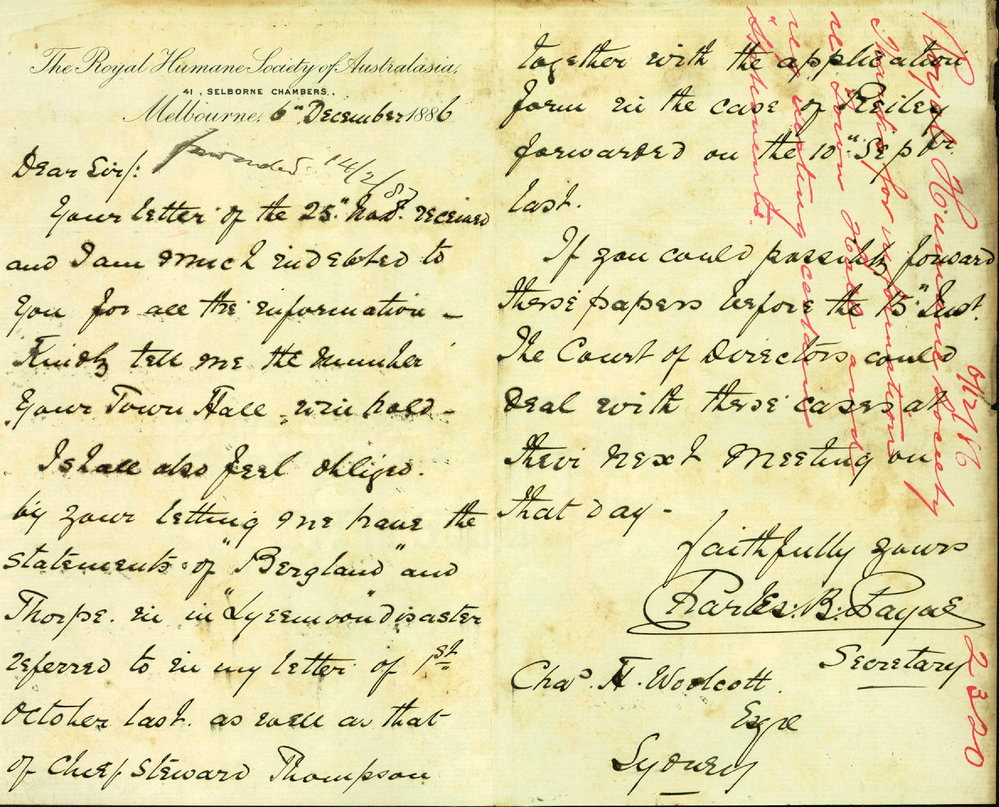 The Royal Humane Society of Australasia,
41, SELBORNE CHAMBERS,
Melbourne, 6th December 1886
forwarded 14/2/87
Dear Sir/:
Your letter of the 25" Novr. received
and I am much indebted to
you for all the information –
Kindly tell me the number
your Town Hall will hold –
I shall also feel obliged
by your letting me have the
statements of "Bergland" and
Thorpe. in in "Lyeemoon" disaster
referred to in my letter of 1st
October last. as well as that
of Chief Steward Thompson
together with the application
form in the case of Reiley
forwarded on the 10" Septr.
last.
If you could possibly forward
these papers before the 15" Inst.
The Court of Directors could
deal with these cases at
their next meeting on
that day –
Faithfully yours
Charles. B. Payne
Secretary
Chas. H. Woolcott.
Esqre
Sydney
Royal Humane Society
Thanks for information
re Town Hall and
requesting certain
statements.
9/12/86
2320